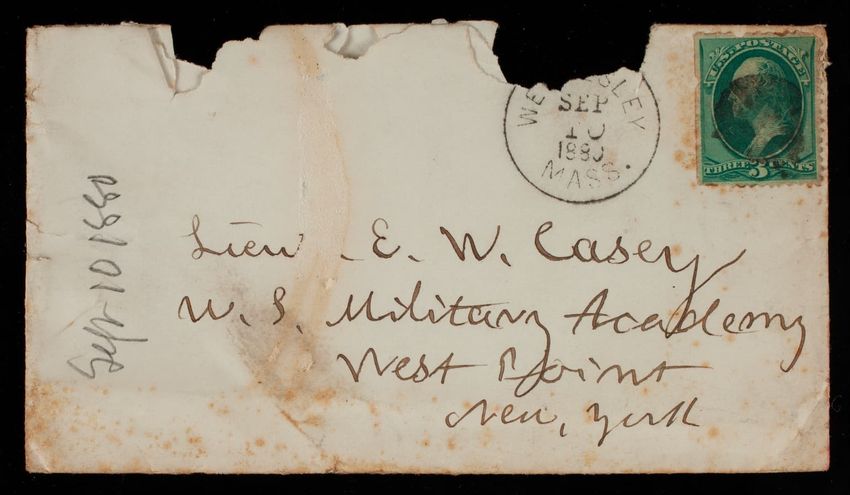 WE SLEY
SEP
10
1880
MASS.
U.S. POSTAGE
THREE 3 CENTS
Lieu . E. W. Casey
W. S. Military Academy
West Point
New, York
Sept 10 1880